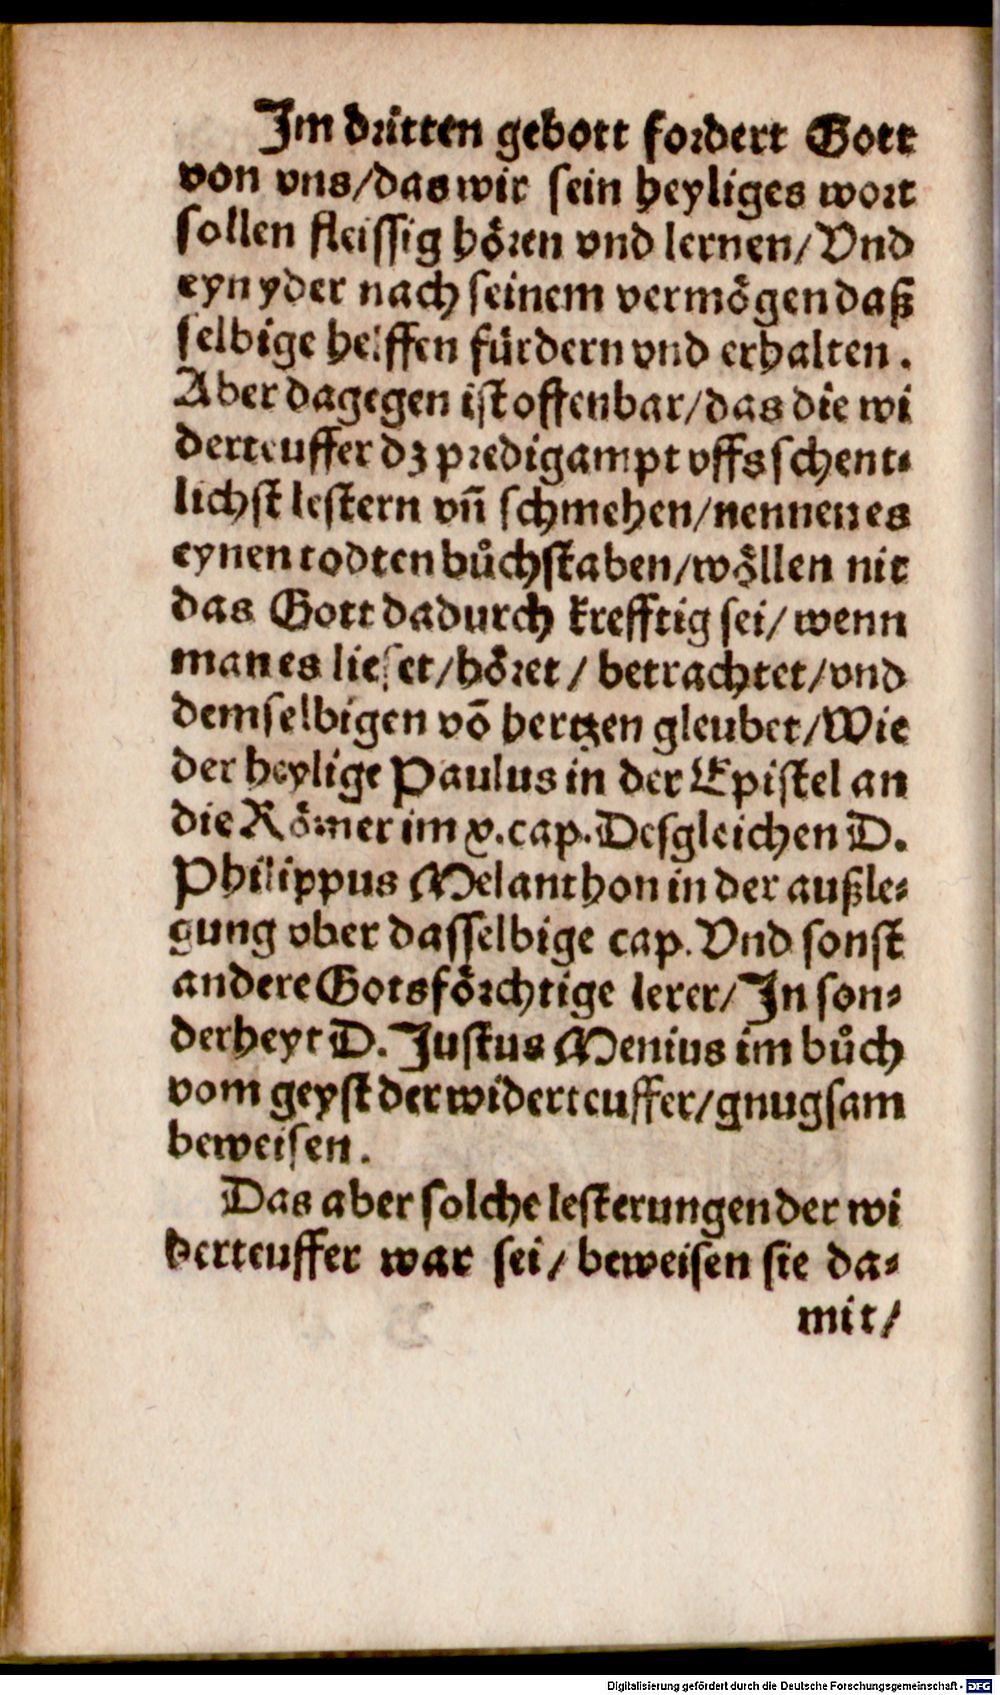 Im dritten gebott fordert Gott
von vns/das wir sein heyliges wort
sollen fleissig hoͤren vnd lernen/Vnd
eyn yder nach seinem vermoͤgen daß
selbige helffen fuͤrdern vnd erhalten.
Aber dagegen ist offenbar/das die wi
derteuffer dz predigampt vffs schent⸗
lichst lestern vñ schmehen/nennen es
eynen todten buͦchstaben/woͤllen nit
das Gott dadurch krefftig sei/wenn
man es lieset/hoͤret/betrachtet/vnd
demselbigen võ hertzen gleubet/Wie
der heylige Paulus in der Epistel an
die Roͤmer im x.cap.Desgleichen D.
Philippus Melanthon in der außle⸗
gung vber dasselbige cap.Vnd sonst
andere Gotsfoͤrchtige lerer/In son⸗
derheyt D.Justus Menius im buͦch
vom geyst der widerteuffer/gnugsam
beweisen.
Das aber solche lesterungen der wi
derteuffer war sei/beweisen sie da⸗
mit/
Digitalisierung gefördert durch die Deutsche Forschungsgemeinschaft - DFG